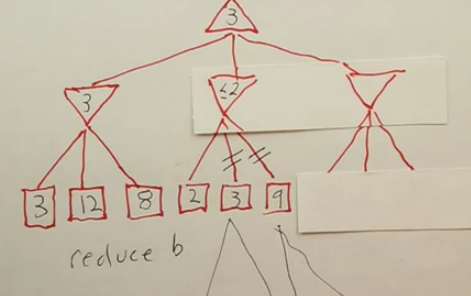 3
3
≤2
3 12 8 2 3 9
reduce b